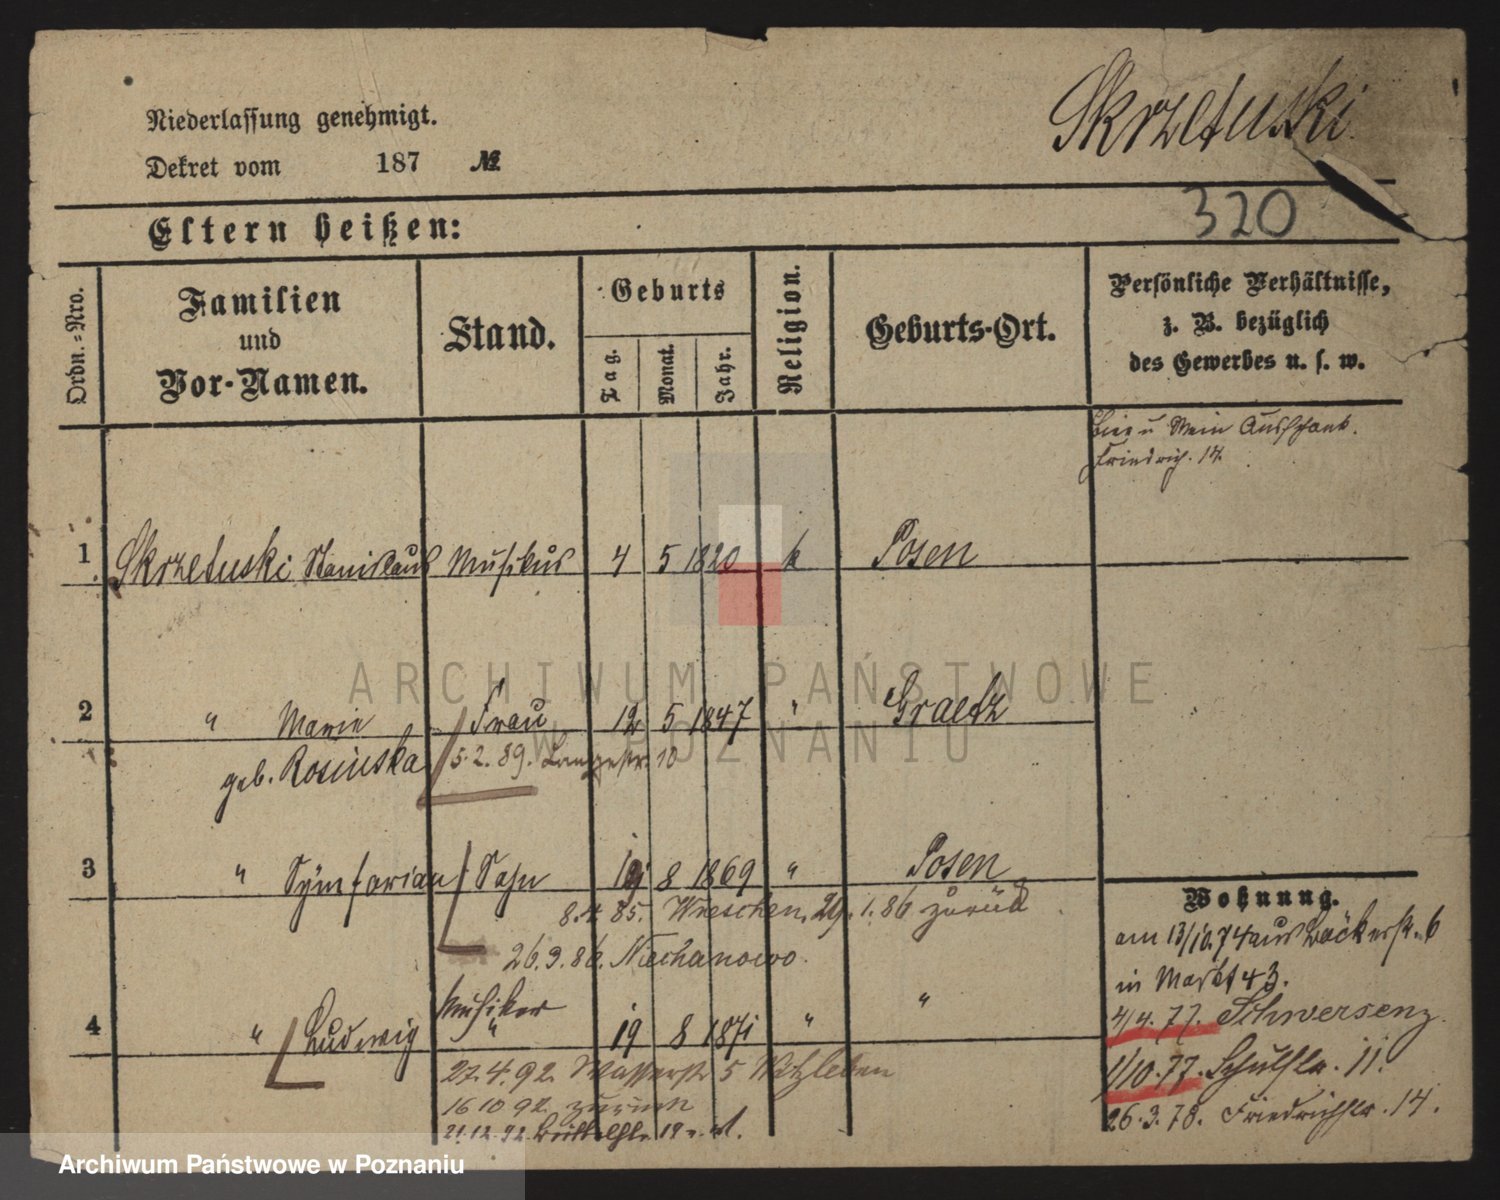 Skrzetuski.
Niederlassung genehmigt.
Dekret vom 187 №
320
Eltern heißen:
Ordn.-Nro.
Familien
und
Vor-Namen.
Stand.
Geburts
Tag.
Monat.
Jahr.
Religion.
Geburts-Ort.
Persönliche Verhältnisse,
z. B. bezüglich
des Gewerbes u. s. w.
Bier u Wein Ausschank.
Friedrich. 14.
1 Skrzetuski Stanislaus Musikus 4 5 1820 k Posen
ARCHIWUM PAŃSTWOWE
W POZNANIU
2 " Marie Frau 12 5 1847 " Graetz
geb. Rosinska 5.2.89. Langestr. 10
3 " Symforian Sohn 19 8 1869 " Posen
8.4.85. Wreschen, 29.1.86 zurück
26.9.86. Niechanowo.
Musiker
4 " Ludwig " 19 8 1871 " "
27.4.92 Wasserstr 5 Witzleben
16 10 92 zurück
21.12.92 19
Wohnung.
am 13/10.74 aus Bäckerstr. 6
in Markt 43.
4/4.77. Schwersenz.
1/10.77. Schulstr. 11.
26.3.78. Friedrichstr. 14.
Archiwum Państwowe w Poznaniu